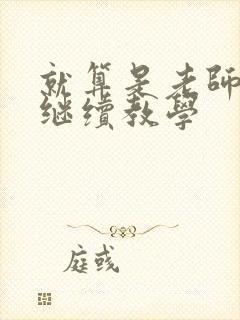 就算是老師
继續教學
庭彧